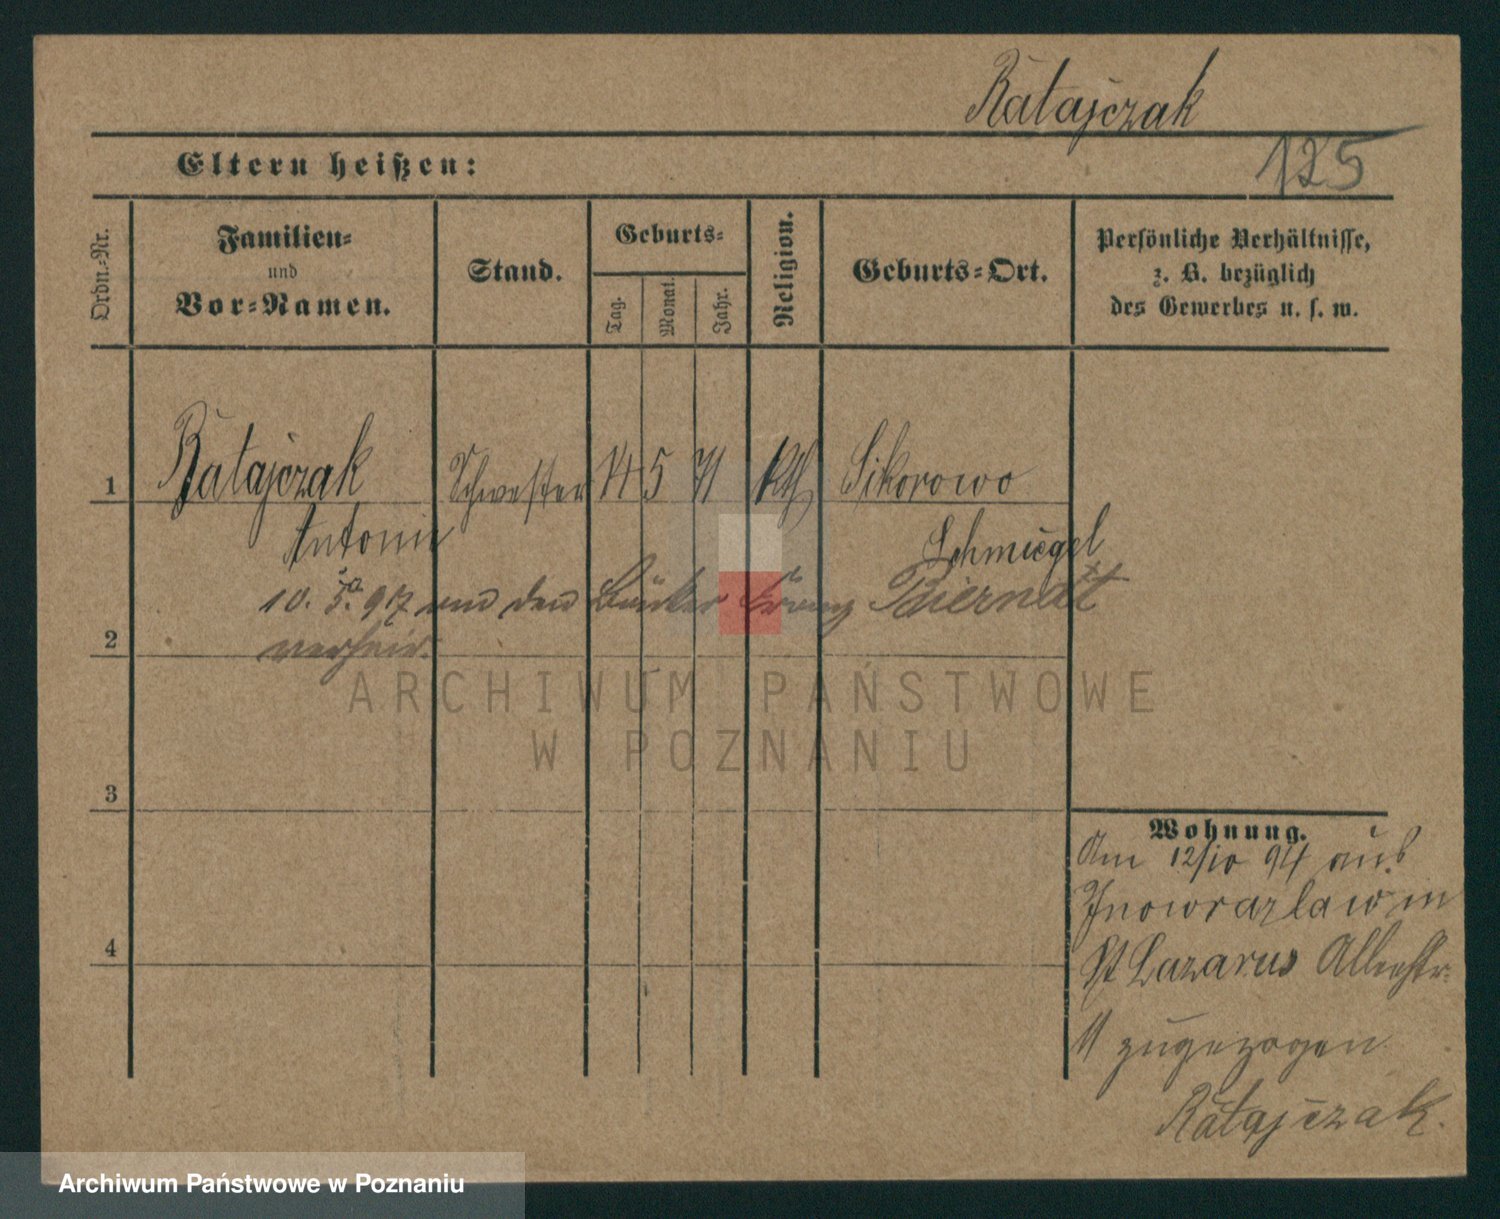 Ratajczak
125
Eltern heißen:
Ordn.-Nr.
Familien-
und
Vor-Namen.
Stand.
Geburts-
Tag.
Monat.
Jahr.
Religion.
Geburts-Ort.
Persönliche Verhältnisse,
z. B. bezüglich
des Gewerbes u. s. w.
1 Ratajczak Schwester 14 5 71 kth Sikorowo
Antonie Schmiegel
10. 5. 97 den Franz Biernat
2 verheir.
ARCHIWUM PAŃSTWOWE
W POZNANIU
3
4
Wohnung.
Am 12/10 94 aus
Inowrazlaw in
St Lazarus
11 zugezogen
Ratajczak.
Archiwum Państwowe w Poznaniu